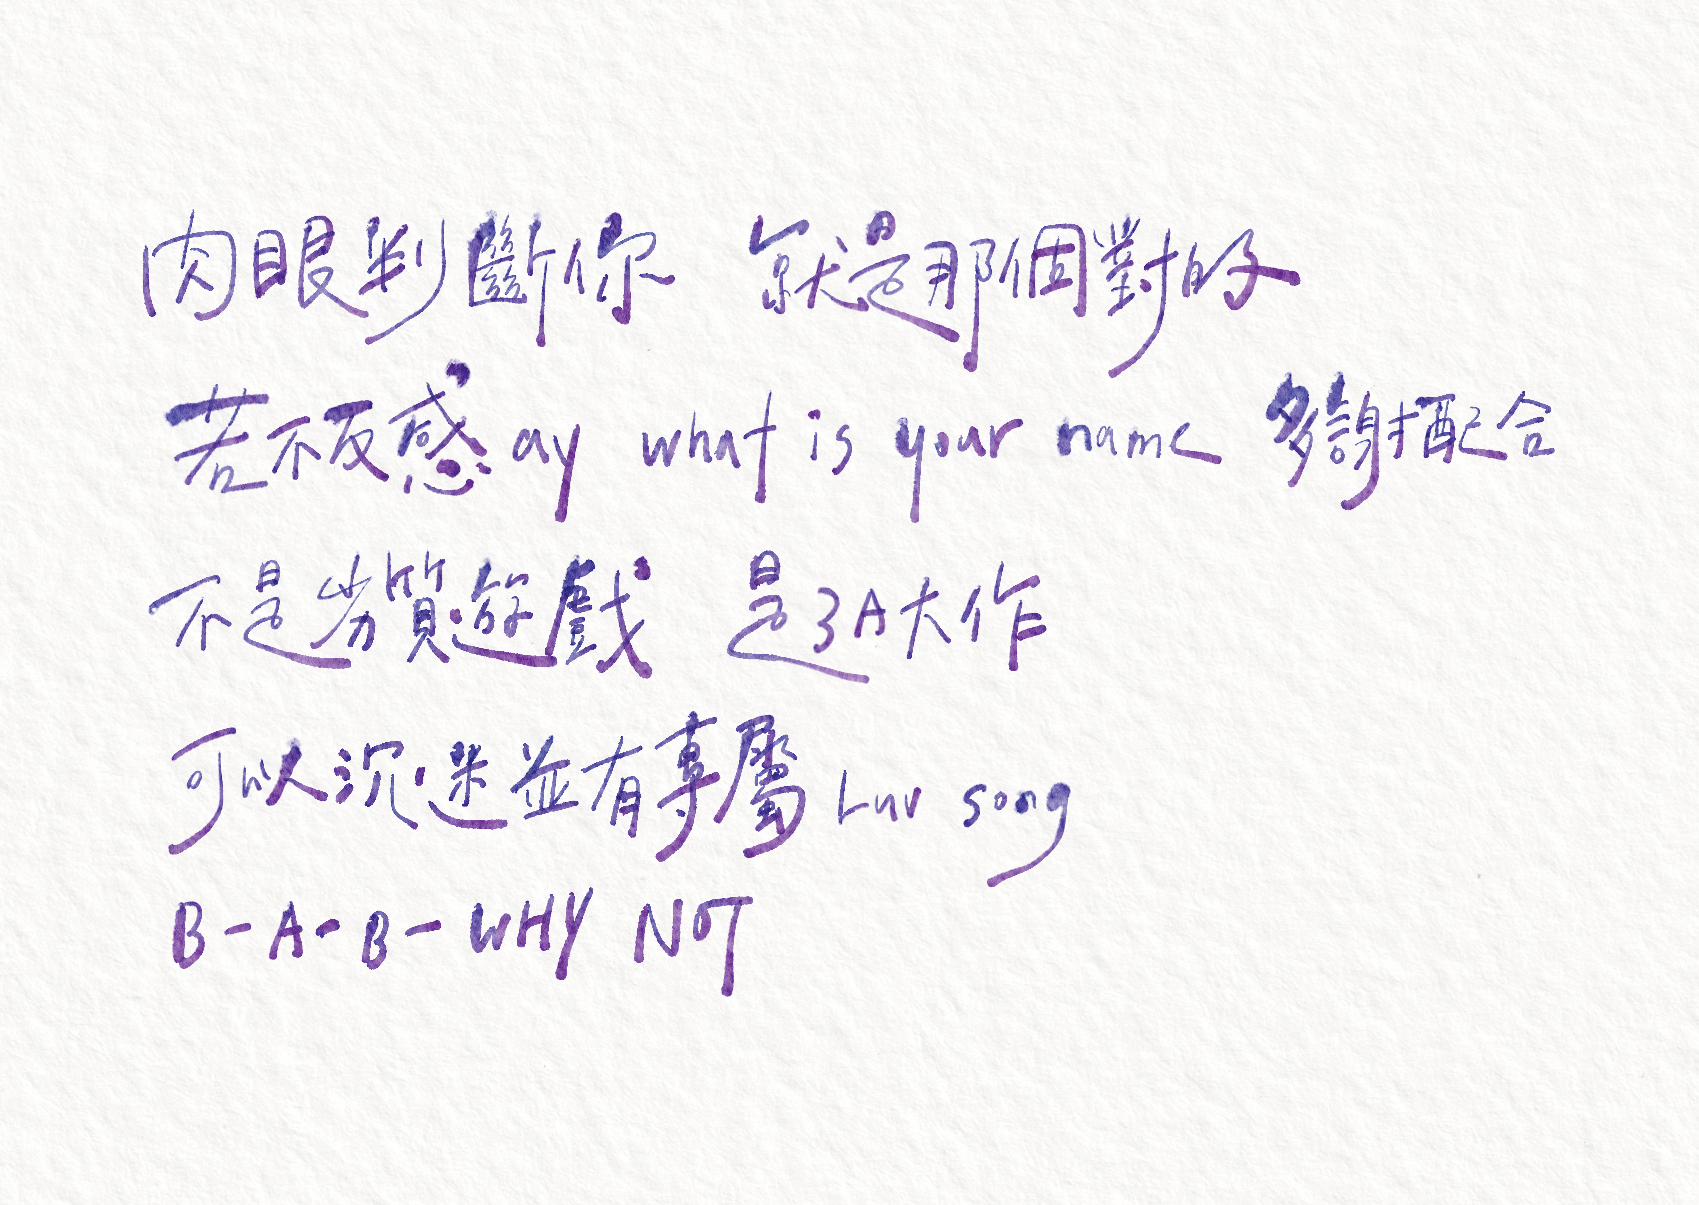 肉眼判斷你 就是那個對的
若不反感 ay what is your name 多謝配合
不是劣質遊戲 是3A大作
可以沉迷並有專屬 Luv song
B-A-B-WHY NOT